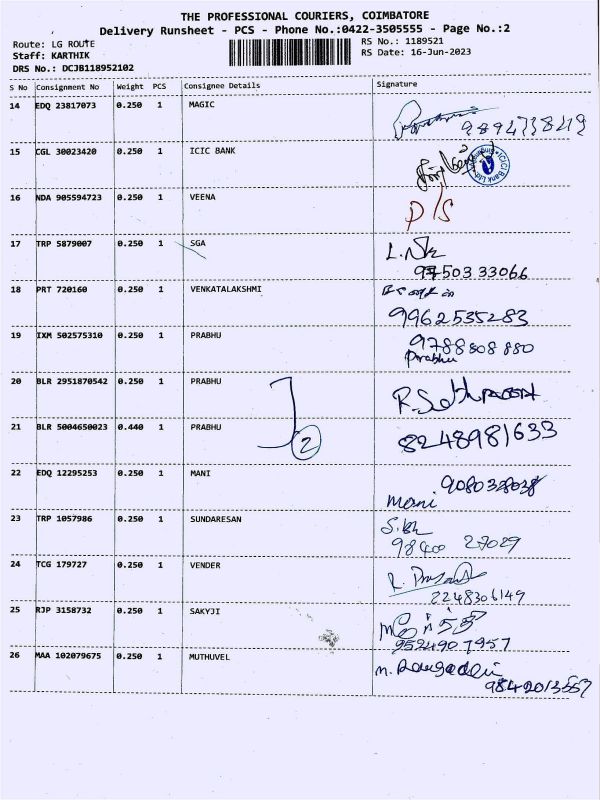 THE PROFESSIONAL COURIERS, COIMBATORE
Delivery Runsheet - PCS - Phone No.:0422-3505555 - Page No.:2
Route: LG ROUTE
Staff: KARTHIK
DRS No.: DCJB118952102
RS No.: 1189521
RS Date: 16-Jun-2023
S No Consignment No Weight PCS Consignee Details Signature
14 EDQ 23817073 0.250 1 MAGIC
9894738419
15 CGL 30023420 0.250 1 ICIC BANK
ICICI Bank Ltd
16 NDA 905594723 0.250 1 VEENA
D/S
17 TRP 5879007 0.250 1 SGA
97503 33066
18 PRT 720160 0.250 1 VENKATALAKSHMI
9962535283
19 IXM 502575310 0.250 1 PRABHU
9788808880
Prabhu
20 BLR 2951870542 0.250 1 PRABHU
21 BLR 5004650023 0.440 1 PRABHU
2
8248981633
22 EDQ 12295253 0.250 1 MANI
Mani
23 TRP 1057986 0.250 1 SUNDARESAN
98400 27029
24 TCG 179727 0.250 1 VENDER
2248306149
25 RJP 3158732 0.250 1 SAKYJI
9524907957
26 MAA 102079675 0.250 1 MUTHUVEL